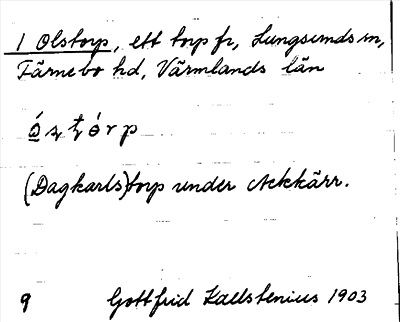 1 Olstorp, ett torp fr, Lungsunds sn,
Färnebo hd, Värmlands län
(Dagkarls)torp under Ackkärr.
9 Gottfrid Kallstenius 1903